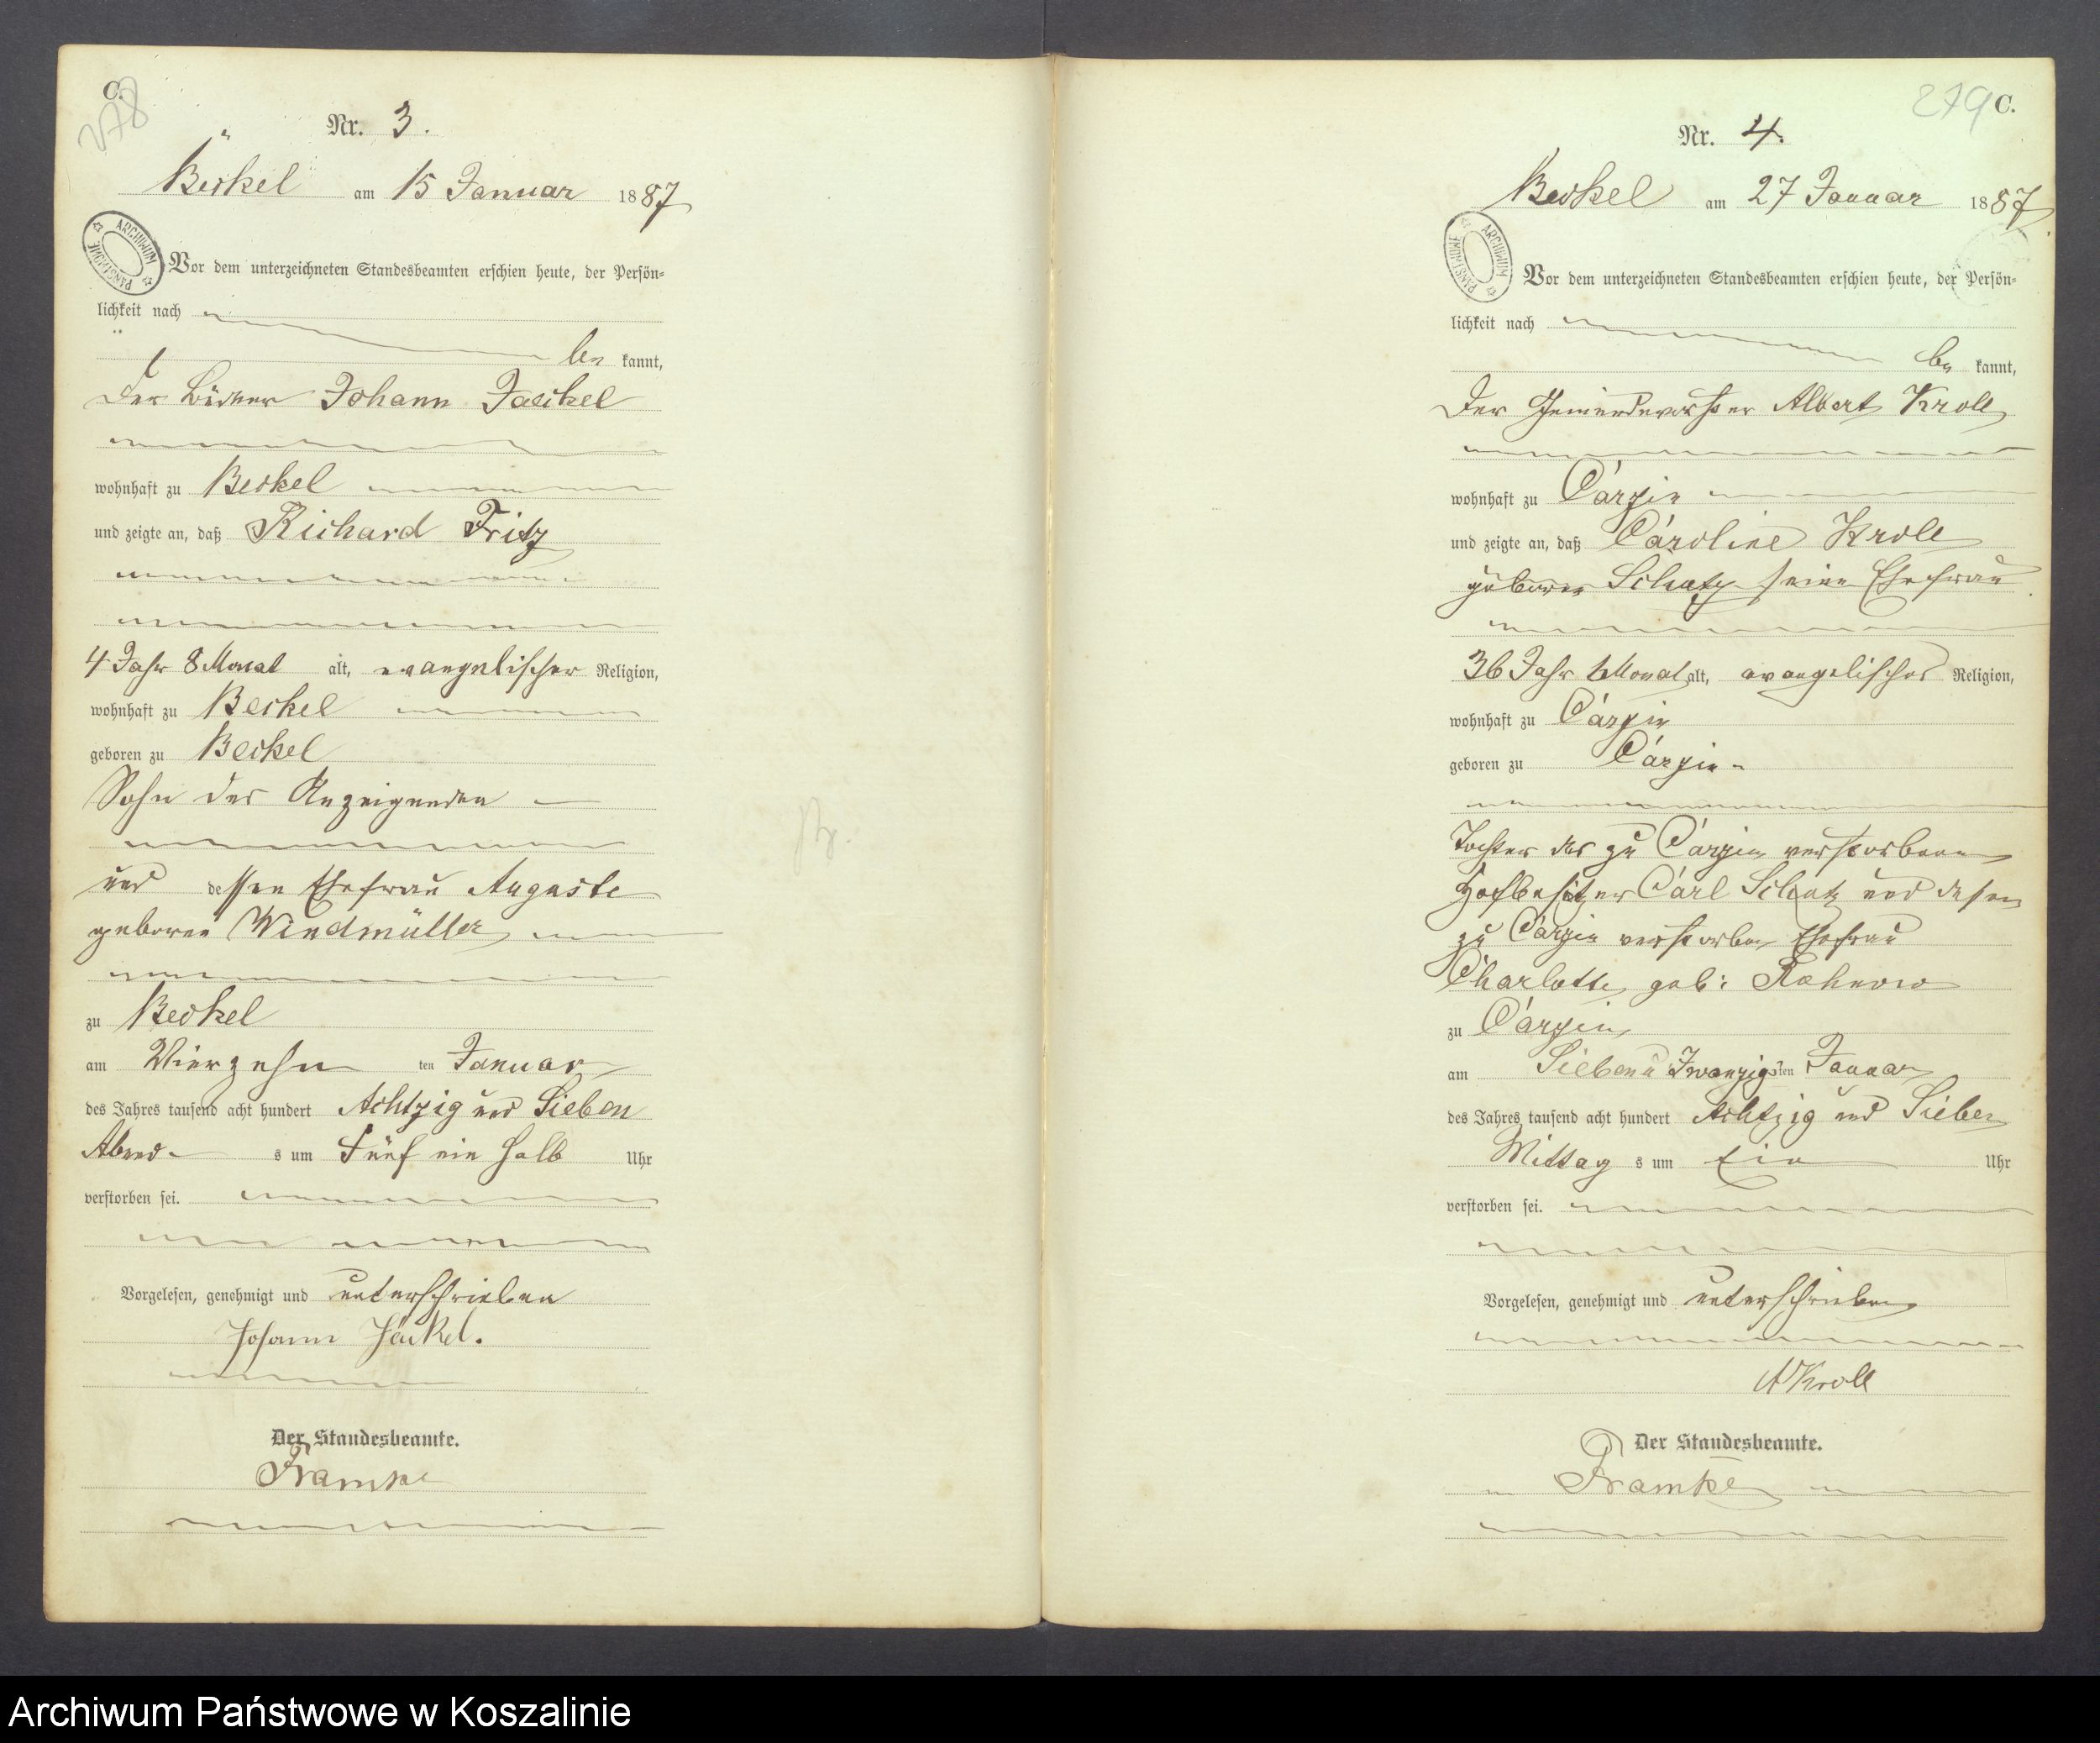 C.
278
Nr. 3.
Beckel am 15 Januar 1887
ARCHIWUM PAŃSTWOWE
Vor dem unterzeichneten Standesbeamten erschien heute, der Persön-
lichkeit nach
be kannt,
der Büdner Johann Jaeckel
wohnhaft zu Beckel
und zeigte an, daß Richard Fritz
4 Jahr 8 Monat alt, evangelischer Religion,
wohnhaft zu Beckel
geboren zu Beckel
Sohn des Anzeigenden
und dessen Ehefrau Auguste
geboren Windmüller
zu Beckel
am Vierzehn ten Januar
des Jahres tausend acht hundert Achtzig und Sieben
Abend s um Fünf ein halb Uhr
verstorben sei.
Vorgelesen, genehmigt und unterschrieben
Johann Jäckel.
Der Standesbeamte.
Framke
279 C.
Nr. 4.
Beckel am 27 Januar 1887
ARCHIWUM PAŃSTWOWE
Vor dem unterzeichneten Standesbeamten erschien heute, der Persön-
lichkeit nach
be kannt,
der Gemeindevorsteher Albert Kroll
wohnhaft zu Carzin
und zeigte an, daß Caroline Kroll
geboren Schutz seine Ehefrau
36 Jahr Monat alt, evangelischer Religion,
wohnhaft zu Carzin
geboren zu Carzin
Tochter des zu Carzin verstorbenen
Hofbesitzer Carl Schutz und dessen
zu Carzin verstorben Ehefrau
Charlotte geb:
zu Carzin
am Sieben u Zwanzigsten Januar
des Jahres tausend acht hundert Achtzig und Sieben
Mittag s um Ein Uhr
verstorben sei.
Vorgelesen, genehmigt und unterschrieben
A Kroll
Der Standesbeamte.
Framke
Archiwum Państwowe w Koszalinie